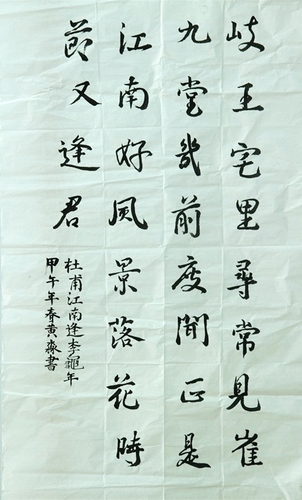 岐王宅里尋常見崔
九堂幾前度聞正是
江南好風景落花時
節又逢君
杜甫江南逢李龜年
甲午年春黄書